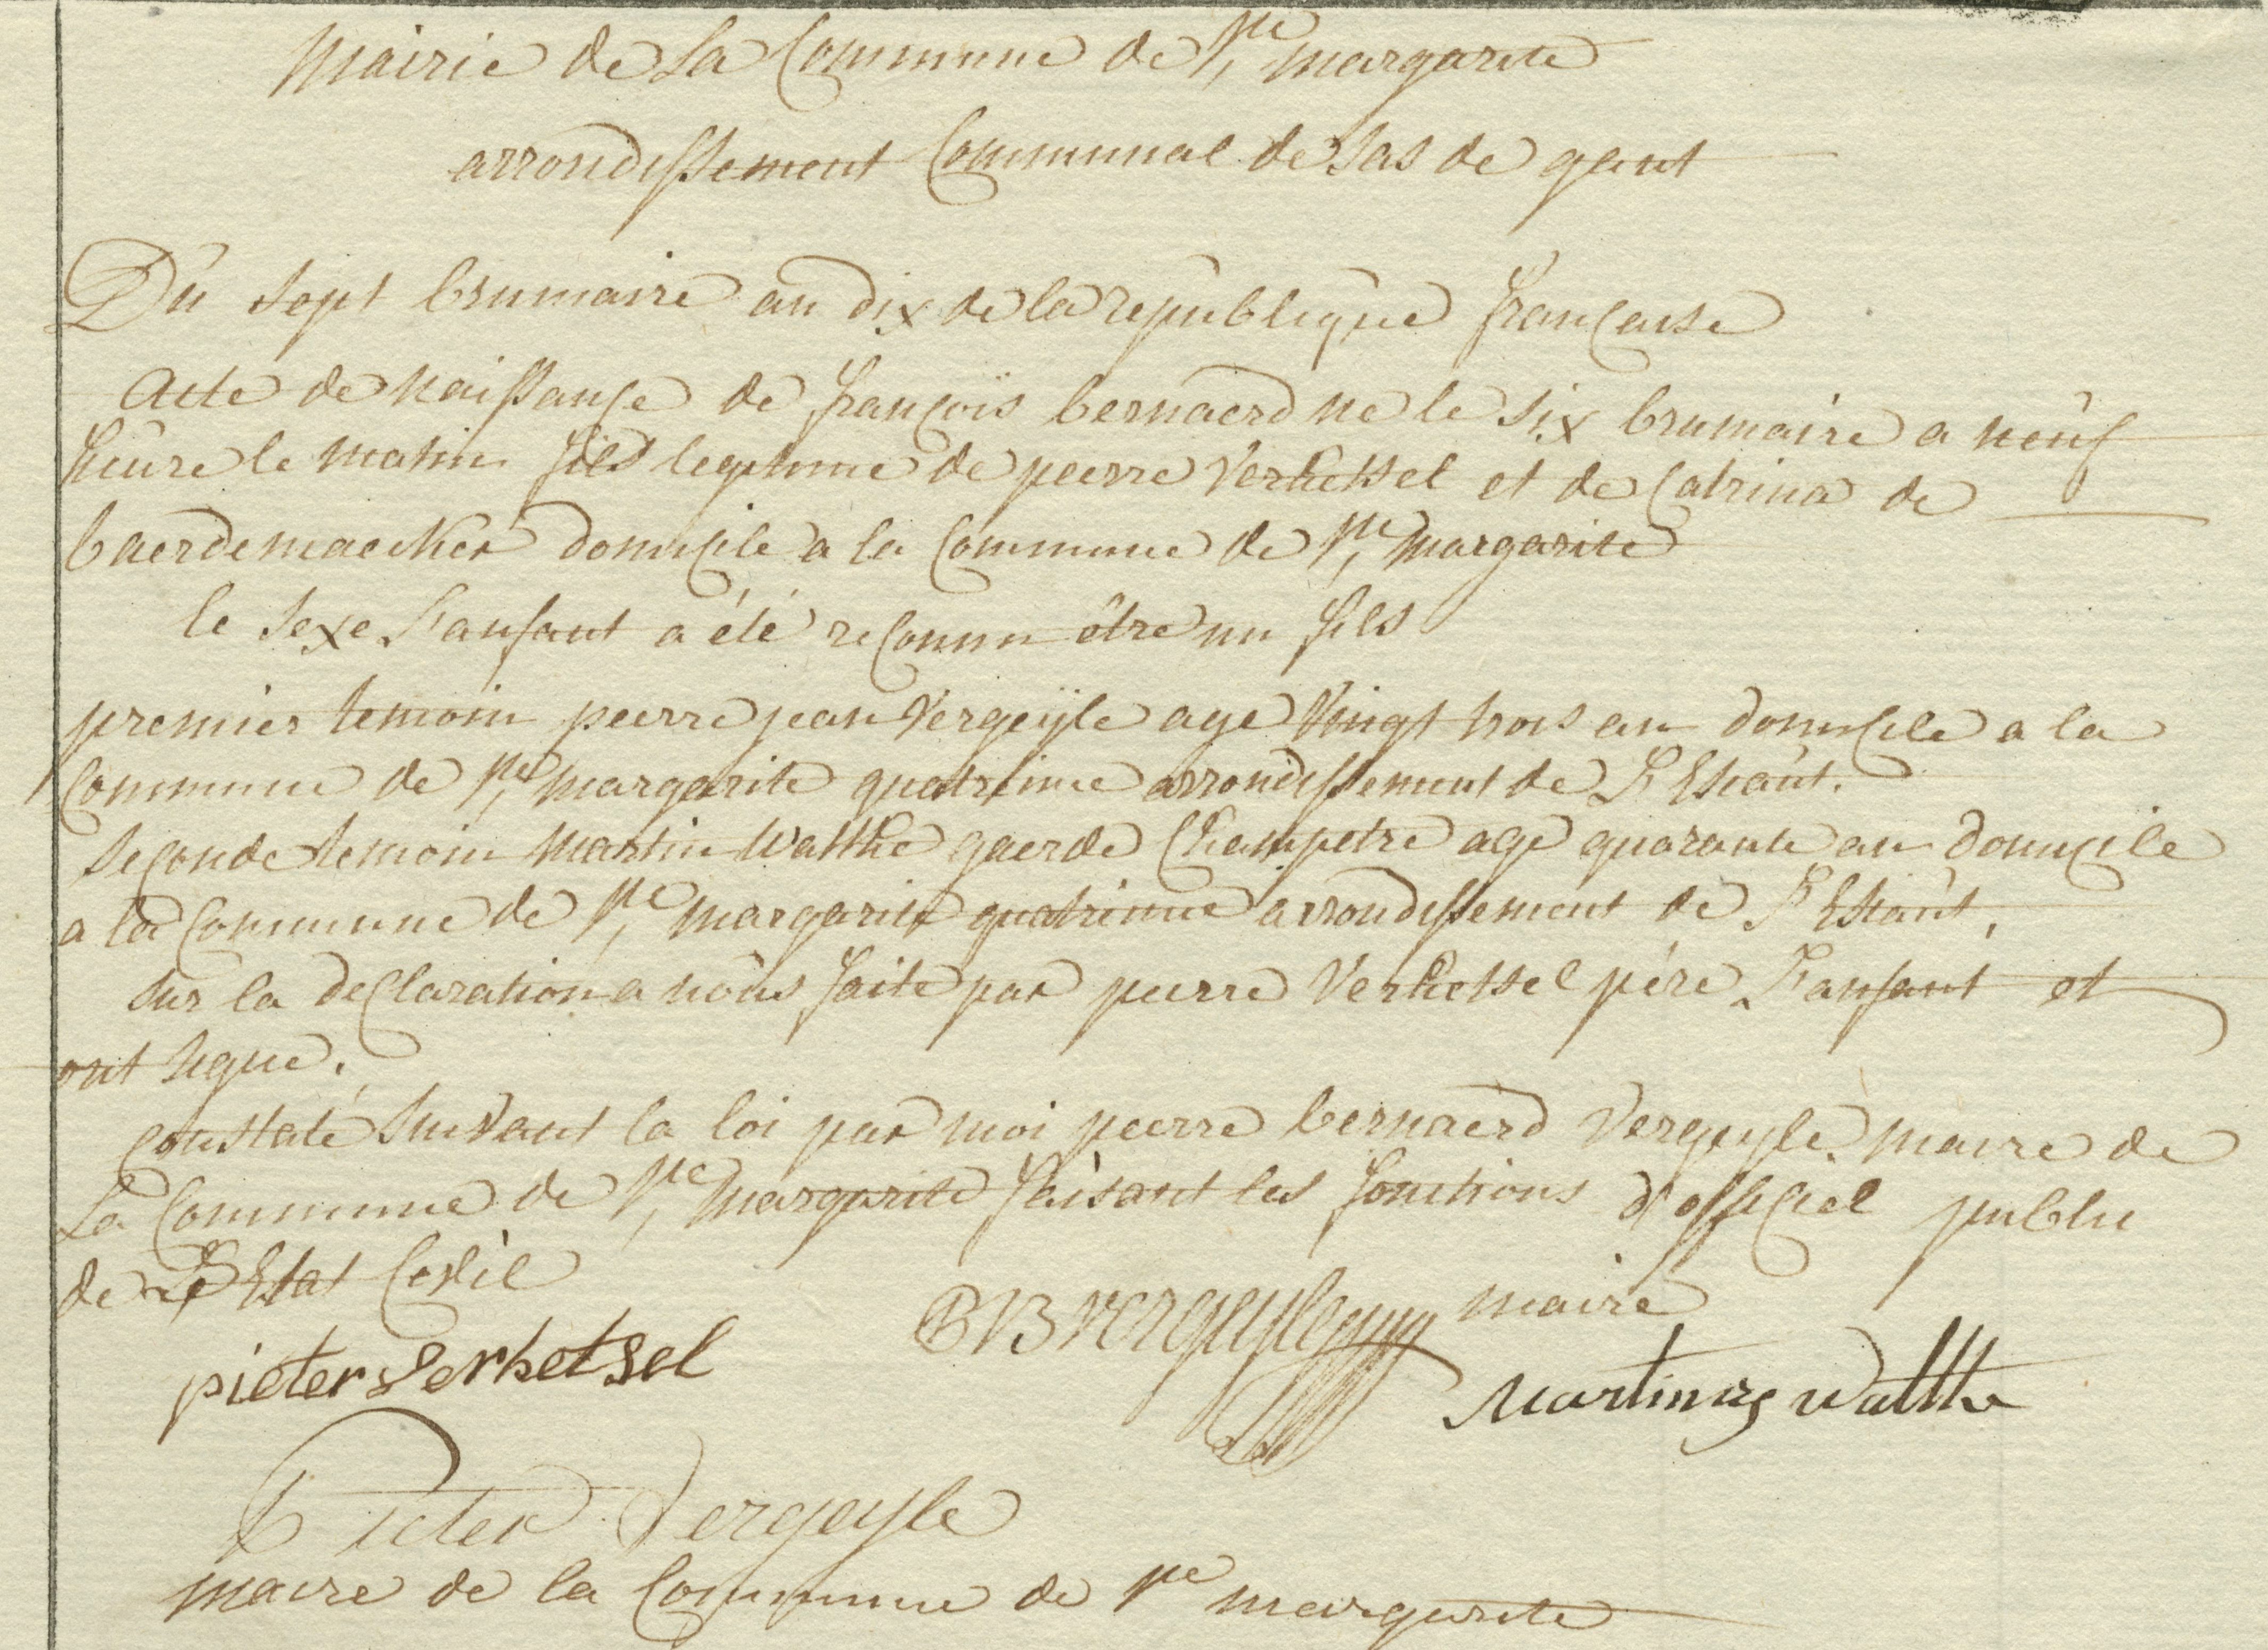 Mairie de La Commune de Ste Margarite
arrondissement Communal de Sas de gant
Du sept brumaire an dix de la republique francaise
Acte de naissançe de françois bernaerd ne le six brumaire a neuf
heure le matin fils legitime de pierre Verhetsel et de Catrina de
baerdemaecker domicile a la Commune de Ste Margarite
le sexe L'anfant a été reconnu être un fils
premier temoin pierre jean Vergeÿle age Vingt trois an domicile a la
Commune de Ste Margarite quatrieme arrondissement de L'Escaut.
seconde temoin Martin Watthe gaerde Champetre age quarante an domicile
a la Commune de Ste Margarite quatrieme arrondissement de L'Escaut,
sur la declaration a nous faite par pierre Verhetsel pére L'anfant et
ont signe.
constaté suivant la loi par moi pierre bernaerd Vergeyle maire de
La Commune de Ste Margarite faisant les fonctions d'officiel public
de L'Estat Civil
PB Vergeyle maire
pieter Verhetsel
Martinus Watthe
Pieter Vergeyle
maire de la Commune de Ste margarite